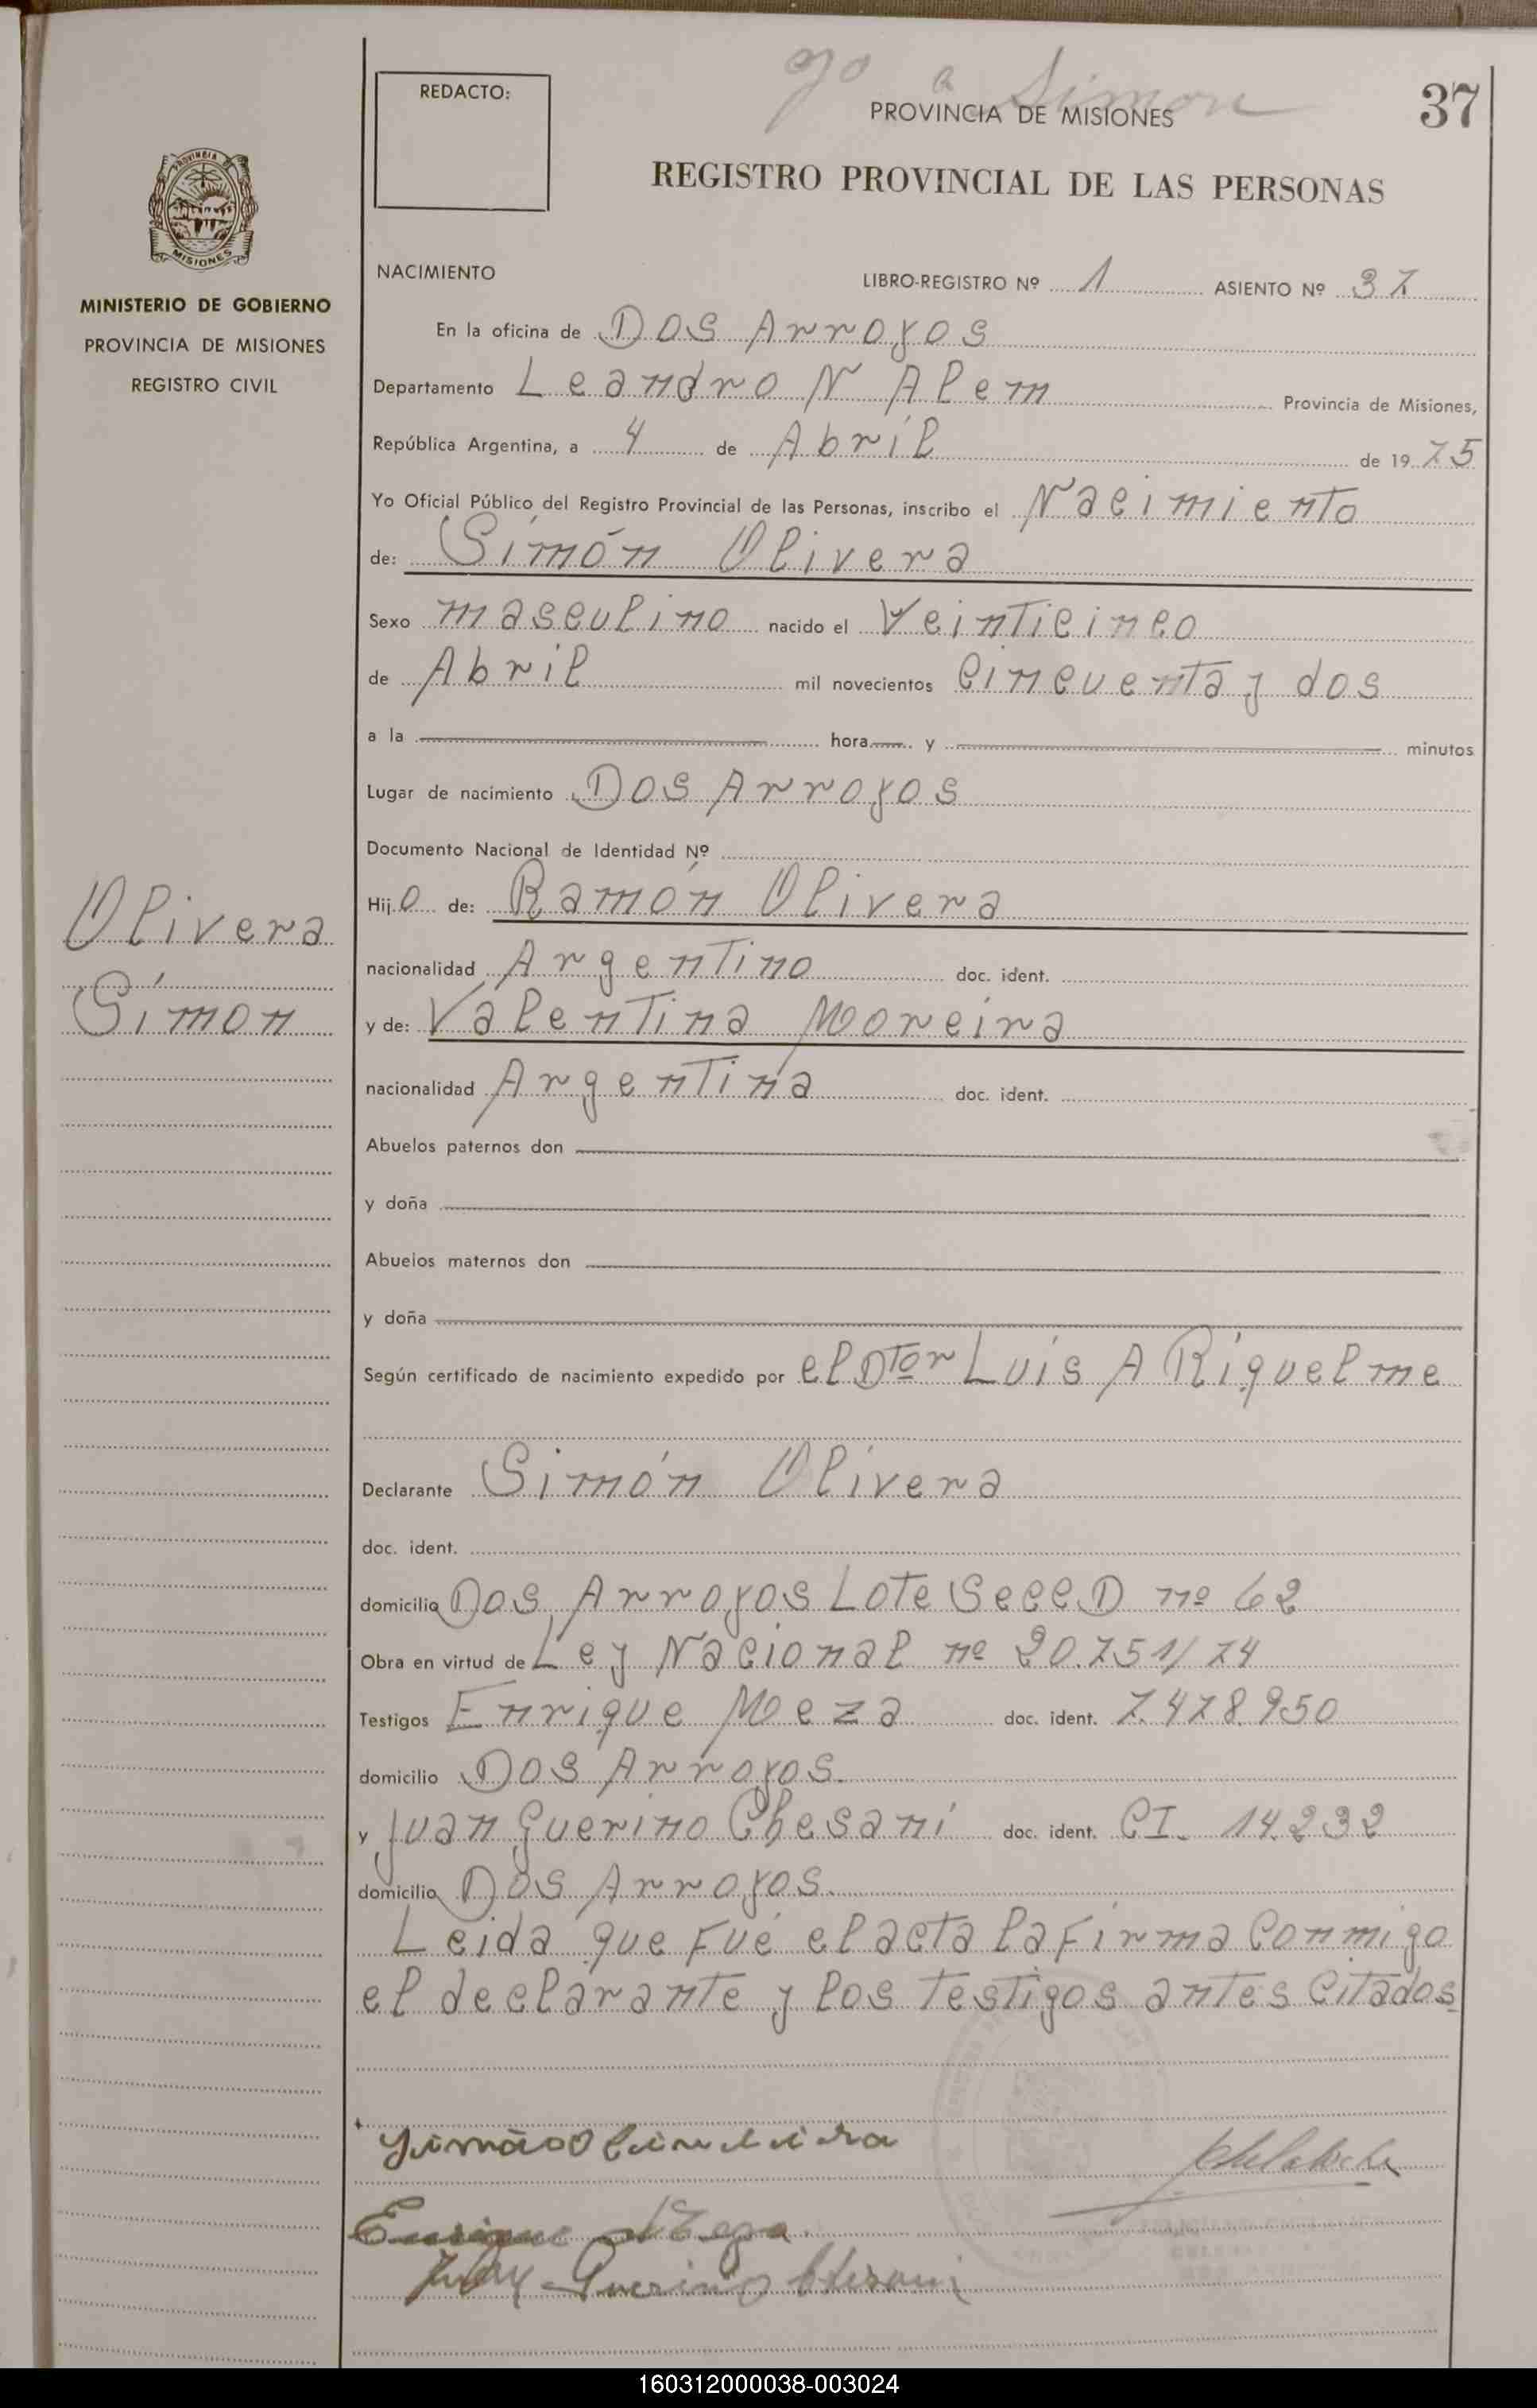 go a Simon
REDACTO:
PROVINCIA DE MISIONES
37
REGISTRO PROVINCIAL DE LAS PERSONAS
PROVINCIA DE MISIONES
MINISTERIO DE GOBIERNO
PROVINCIA DE MISIONES
REGISTRO CIVIL
NACIMIENTO LIBRO-REGISTRO Nº 1 ASIENTO Nº 37
En la oficina de Dos Arroyos
Departamento Leandro N Alem Provincia de Misiones,
República Argentina, a 4 de Abril de 1975
Yo Oficial Público del Registro Provincial de las Personas, inscribo el Nacimiento
de: Simón Olivera
Sexo masculino nacido el Veinticinco
de Abril mil novecientos Cincuenta y dos
a la hora y minutos
Lugar de nacimiento Dos Arroyos
Documento Nacional de Identidad Nº
Olivera
Simón
Hijo de: Ramón Olivera
nacionalidad Argentino doc. ident.
y de: Valentina Moreira
nacionalidad Argentina doc. ident.
Abuelos paternos don
y doña
Abuelos maternos don
y doña
Según certificado de nacimiento expedido por el Dtor Luis A Riquelme
Declarante Simón Olivera
doc. ident.
domicilio Dos Arroyos Lote Secc D nº 62
Obra en virtud de Ley Nacional nº 20.751/74
Testigos Enrique Meza doc. ident. 7.478.950
domicilio Dos Arroyos.
y Juan Guerino Chesani doc. ident. CI. 14.232
domicilio Dos Arroyos.
Leida que fué el acta la firma conmigo
el declarante y los testigos antes citados
Enrique Meza
Juan Guerino Chesani
160312000038-003024